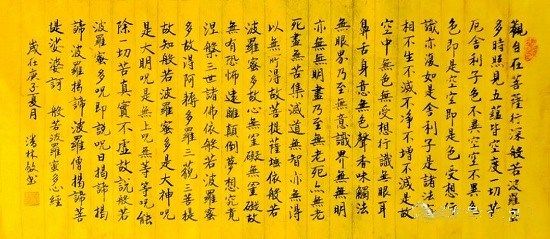 觀自在菩薩行深般若波羅蜜
多時照見五蘊皆空度一切苦
厄舍利子色不異空空不異色
色即是空空即是色受想行
識亦復如是舍利子是諸法
相不生不滅不淨不增不減是故
空中無色無受想行識無眼耳
鼻舌身意無色聲香味觸法
無眼界乃至無意識界無無明
亦無無明盡乃至無老死亦無老
死盡無苦集滅道無智亦無得
以無所得故菩提薩埵依般若
波羅蜜多故心無罣礙無罣礙故
無有恐怖遠離顛倒夢想究竟
涅槃三世諸佛依般若波羅蜜
多故得阿耨多羅三藐三菩提
故知般若波羅蜜多是大神呪
是大明呪是無上呪無等呪能
除一切苦真實不虛故說般若
波羅蜜多呪即說呪曰揭諦揭
諦波羅揭諦波羅僧揭諦菩
提娑婆訶 般若波羅蜜多心經
歲在庚子夏月 林敏書